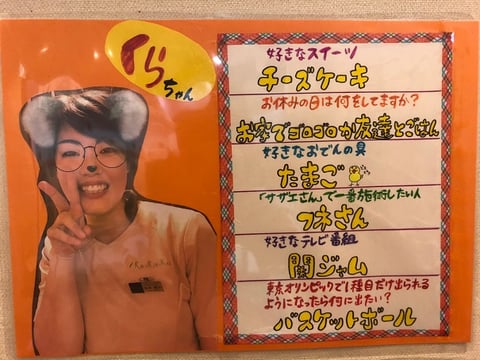 くらちゃん
好きなスイーツ
チーズケーキ
お休みの日は何をしてますか?
お家でゴロゴロか友達とごはん
好きなおでんの具
たまご
「サザエさん」で一番施術したい人
フネさん
好きなテレビ番組
関ジャム
東京オリンピックで1種目だけ出られる
ようになったら何に出たい?
バスケットボール